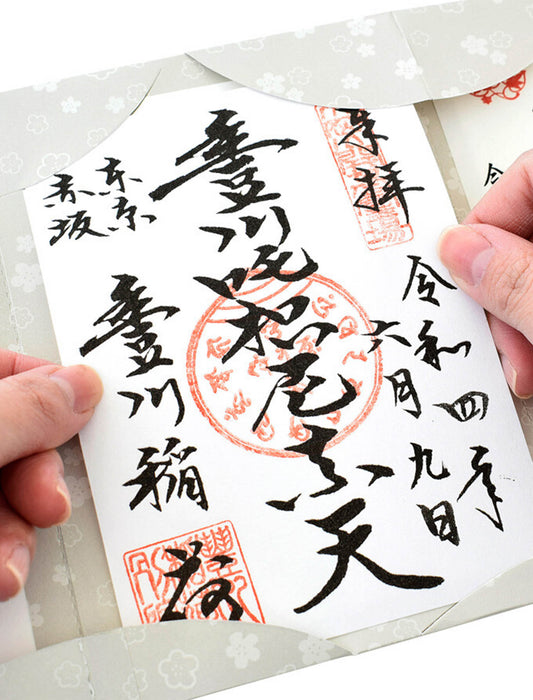 令
奉拝
令和四年
六月九日
豊川吒枳尼真天
東京
赤坂
豊川稲荷